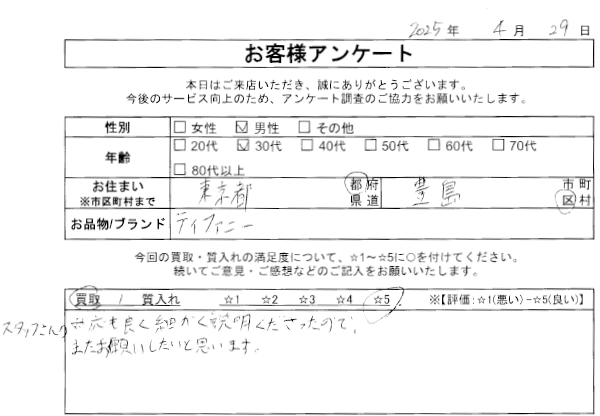 2025年 4月 29日
お客様アンケート
本日はご来店いただき、誠にありがとうございます。
今後のサービス向上のため、アンケート調査のご協力をお願いいたします。
性別 □ 女性 ☑ 男性 □ その他
年齢 □ 20代 ☑ 30代 □ 40代 □ 50代 □ 60代 □ 70代
□ 80代以上
お住まい ※市区町村まで 東京都 都府県道 豊島 市町区村
お品物/ブランド ティファニー
今回の買取・質入れの満足度について、☆1～☆5に○を付けてください。
続いてご意見・ご感想などのご記入をお願いいたします。
買取 / 質入れ ☆1 ☆2 ☆3 ☆4 ☆5 ※【評価:☆1(悪い)-☆5(良い)】
スタッフさんの対応も良く細かく説明くださったので、
またお願いしたいと思います。